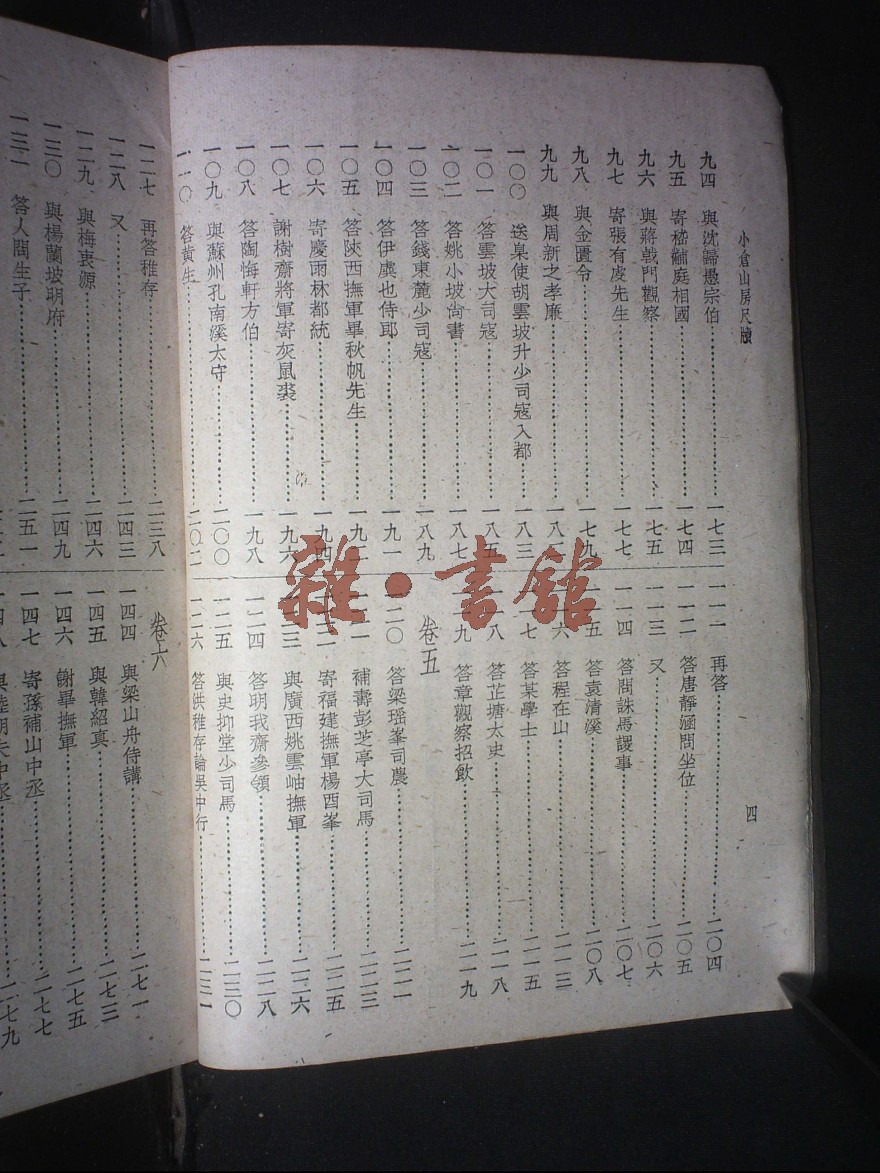 小倉山房尺牘
四
九四 與沈歸愚宗伯 一七三
九五 寄嵇黼庭相國 一七四
九六 與蔣戟門觀察 一七五
九七 寄張有虔先生 一七七
九八 與金匱令 一七九
九九 與周新之孝廉
一〇〇 送臬使胡雲坡升少司寇入都 一八三
一〇一 答雲坡大司寇 一八五
一〇二 答姚小坡尚書 一八七
一〇三 答錢東麓少司寇 一八九
一〇四 答伊虞也侍郎 一九一
一〇五 答陝西撫軍畢秋帆先生 一九二
一〇六 寄慶雨林都統 一九四
一〇七 謝樹齋將軍寄灰鼠裘 一九六
一〇八 答陶悔軒方伯 一九八
一〇九 與蘇州孔南溪太守 二〇〇
一一〇 答黃生 二〇二
一一一 再答 二〇四
一一二 答唐靜涵問坐位 二〇五
一一三 又 二〇六
一一四 答問誅馬謖事 二〇七
一一五 答袁清溪 二〇八
一一六 答程在山 二一三
一一七 答某學士 二一五
一一八 答芷塘太史 二一八
一一九 答章觀察招飲 二一九
卷五
一二〇 答梁瑤峯司農 二二一
一二一 補壽彭芝亭大司馬 二二三
一二二 寄福建撫軍楊西峯 二二五
一二三 與廣西姚雲岫撫軍 二二六
一二四 答明我齋參領 二二八
一二五 與史抑堂少司馬 二三〇
一二六 答洪稚存論吳中行 二三一
一二七 再答稚存 二三八
一二八 又 二四三
一二九 與梅衷源 二四六
一三〇 與楊蘭坡明府 二四九
一三一 答人問生子 二五一
卷六
一四四 與梁山舟侍講 二七一
一四五 與韓紹真 二七三
一四六 謝畢撫軍 二七五
一四七 寄孫補山中丞 二七七
一四八 二七九
雜·書館